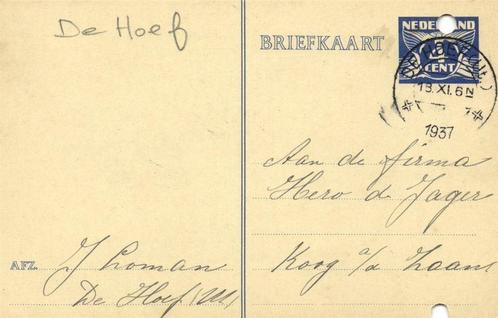 De Hoef
BRIEFKAART
NEDERLAND
CENT
13.XI.6N
1937
Aan de firma
Hero d Jager
Koog a/d Zaan
AFZ.
De Hoef (U)